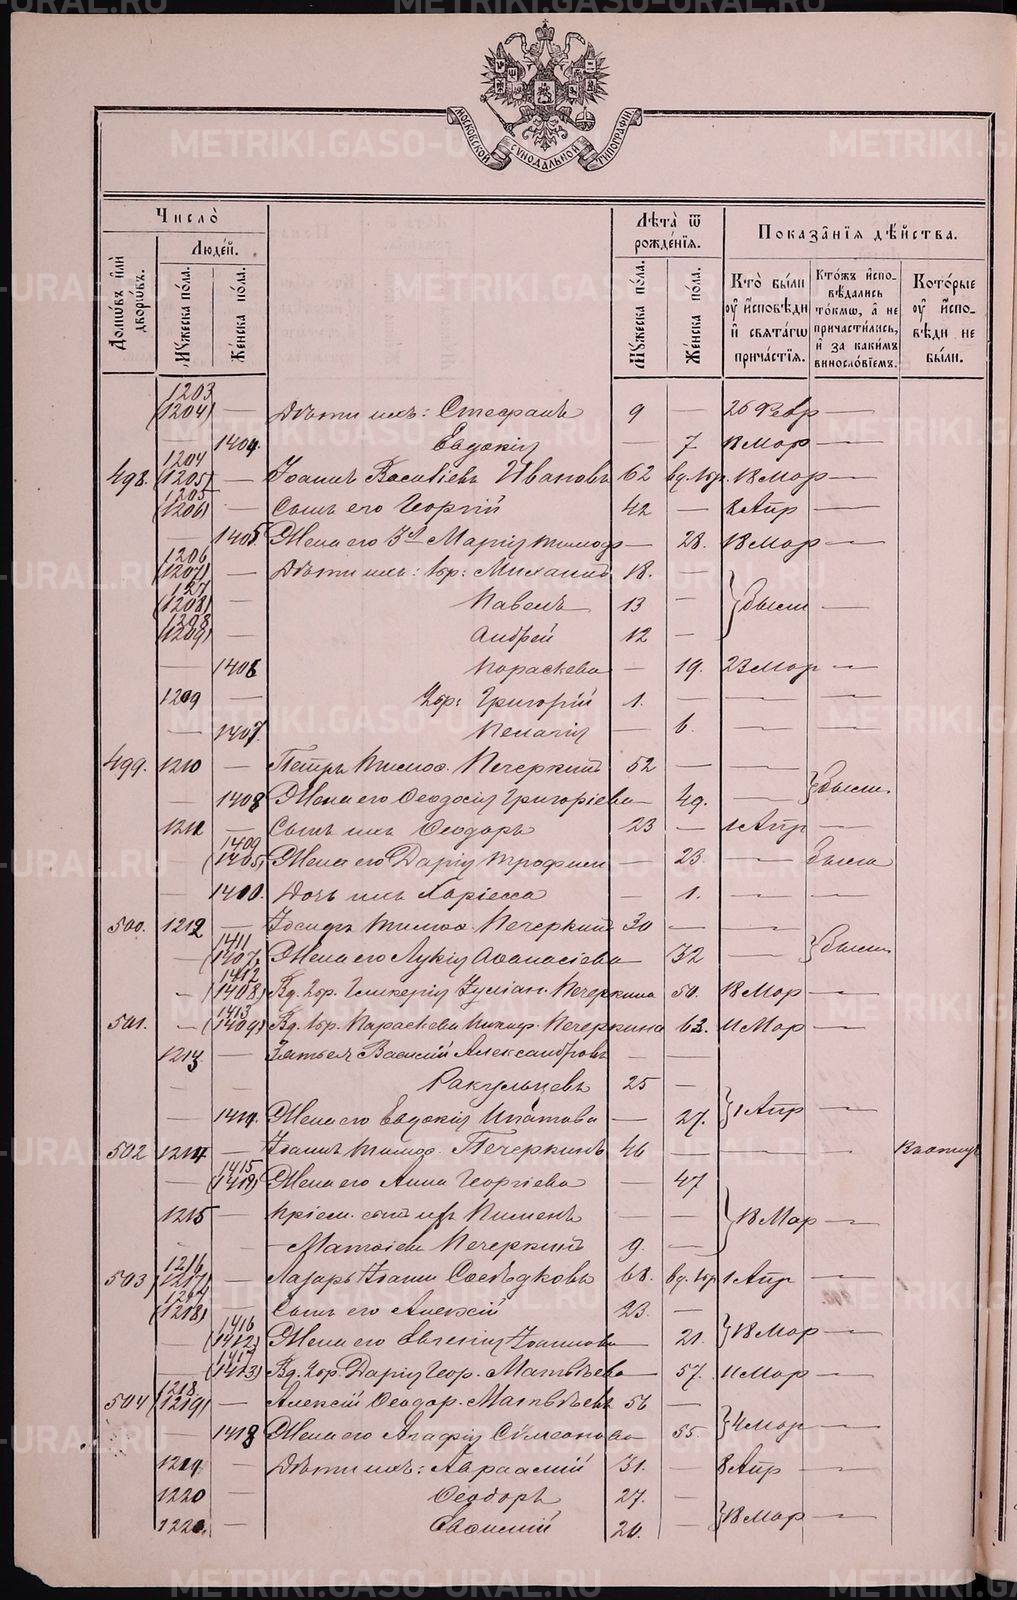 МОСКОВСКОЙ СѴНОДАЛЬНОЙ ТИПОГРАФІИ
Число̀
Людей.
Домѡвъ и҆лѝ дворѡвъ.
Мꙋжеска по́ла.
Же́нска по́ла.
Лѣ̑та ѿ рожденїѧ.
Мꙋжеска по́ла.
Же́нска по́ла.
Показа̑нїѧ дѣ́йства.
Кто̀ бы́ли оу҆ и҆сповѣди и҆ свѧта́гѡ прича́стїѧ.
Кто́жъ и҆спо-вѣдались то́кмѡ, а҆ не причасти́лись, и҆ за каки́мъ винословїемъ.
Кото́рые оу҆ и҆спо-вѣди не бы́ли.
1203 (1204) — Дѣти ихъ: Стефанъ 9 — 26 Февр —
— 1404. Евдокія — 7 18 Мар —
498. 1204 (1205) — Іоаннъ Василіевъ Ивановъ 62 вд. 1 бр. 18 Мар —
1205 (1206) — Сынъ его Георгій 42 — 8 Апр —
— 1405. Жена его 3 я Марія Тимоф — 28. 18 Мар —
1206 (1207) — Дѣти ихъ: 1 бр: Михаилъ 18. —
127 (1208) — Павелъ 13 — } были —
1208 (1209) — Андрей 12 —
— 1406 Параскева — 19. 23 Мар —
1209 — 2 бр: Григорій 1. — — —
— 1407. Пелагія — 6. — —
499. 1210 — Петръ Тимоѳ. Печеркинъ 52 — —
— 1408 Жена его Ѳеодосія Григоріева — 49. — } были.
1211 — Сынъ ихъ Ѳеодоръ 23 — 1 Апр —
1409 (1405) Жена его Дарія Трофим — 23. — была
— 1410. Дочь ихъ Лариесса — 1. — —
500. 1212 — Іосифъ Тимоѳ. Печеркинъ 30 — —
— 1411 (1407) Жена его Лукія Аѳанасіева — 32 — } были
— 1412 (1408) Вд. 2 бр. Гликерія Іуліан. Печеркина 50. 18 Мар —
501. — 1413 (1409) Вд. 1 бр. Параскева Никиф. Печеркина 63. 11 Мар —
1213 — Зятьел Василій Александровъ — —
Ракульцевъ 25 —
— 1414. Жена его Евдокія Ипатова — 27. } 1 Апр —
502 1214 — Іоаннъ Тимоѳ. Печеркинъ 46 — — —
— 1415 (1411) Жена его Анна Георгіева — 47
1215 — Пріем. сынъ ихъ Пименъ — — } 18 Мар —
Матѳіевъ Печеркинъ 9. —
503 1216 (1217) — Лазарь Іоанн Сосѣдковъ 68. вд. 1 бр 1 Апр —
1217 (1218) — Сынъ его Алексій 23. —
— 1416 (1412) Жена его Евгенія Іоаннова — 21. } 18 Мар —
— 1417 (1413) Вд. 2 бр. Дарія Геор. Матвѣева — 57. 11 Мар —
504 1218. (1219) — Алексій Ѳеодор. Матвѣевъ 56 —
— 1418 Жена его Агафія Сѵмеонова — 55. } 4 Мар —
1219 — Дѣти ихъ: Авраамій 31. — 8 Апр —
1220 — Ѳеодоръ 27. —
1221. — Евѳимій 20. — } 18 Мар —
METRIKI.GASO-URAL.RU